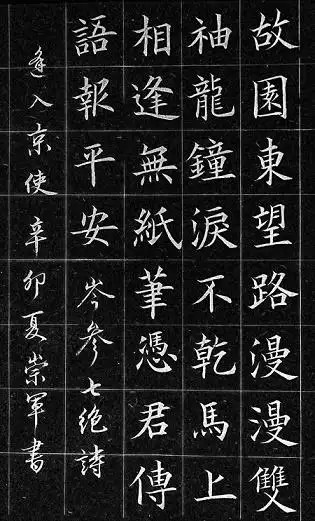 故園東望路漫漫雙
袖龍鐘淚不乾馬上
相逢無紙筆憑君傳
語報平安 岑參七绝詩
逢入京使 辛卯夏崇軍書